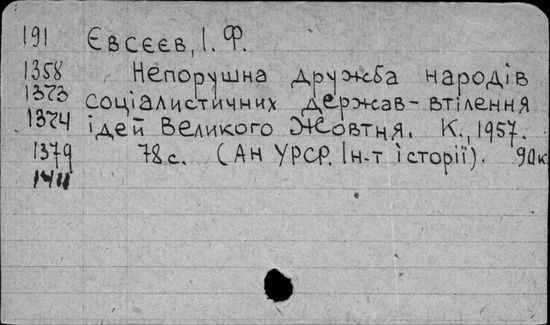 191 Євсєєв, І. Ф.
1358 Непорушна дружба народів
1373 соціалистичних держав - втілення
1374 ідей Великого Жовтня. К., 1957.
1379 78 с. (АН УРСР. Ін-т історії). 90к
1411